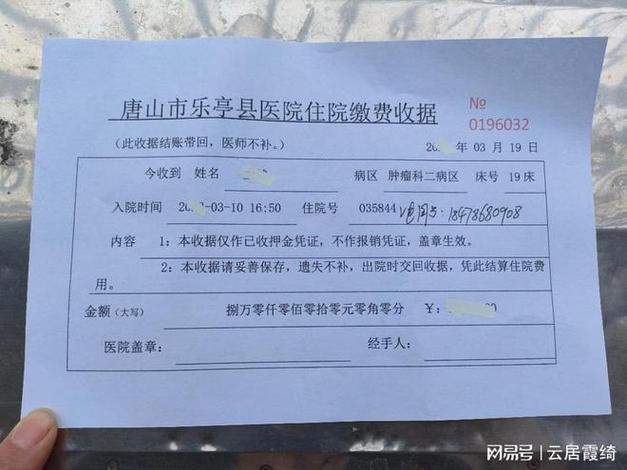 唐山市乐亭县医院住院缴费收据
№
0196032
(此收据结账带回，医师不补。) 20 年 03 月 19 日
今收到 姓名 病区 肿瘤科二病区 床号 19床
入院时间 20 -03-10 16:50 住院号 035844 18478680908
内容 1：本收据仅作已收押金凭证，不作报销凭证，盖章生效。
2：本收据请妥善保存，遗失不补，出院时交回收据，凭此结算住院费
用。
金额(大写) 捌万零仟零佰零拾零元零角零分 ￥: 00
医院盖章： 经手人：
网易号 | 云居霞绮